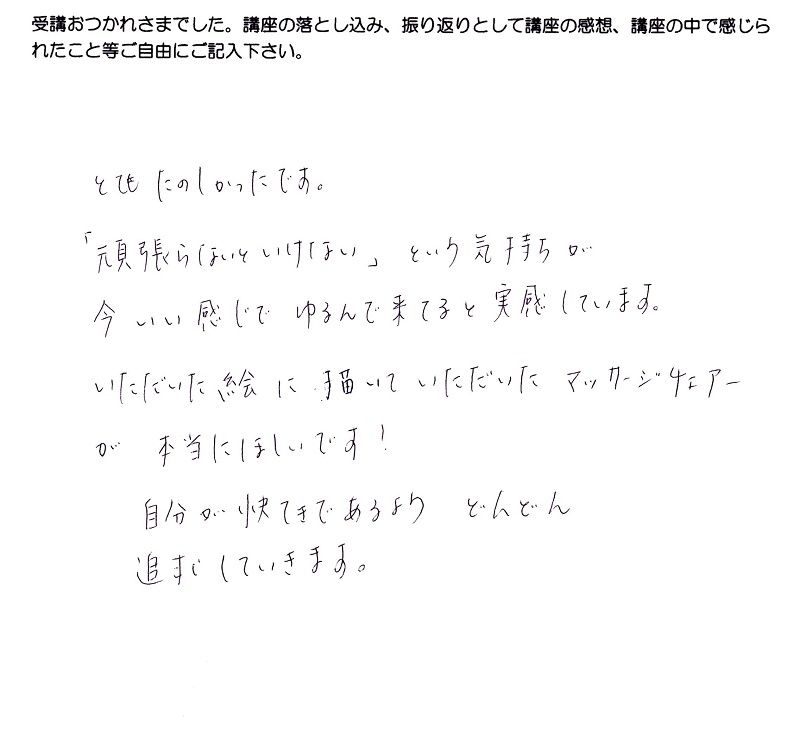 受講おつかれさまでした。講座の落とし込み、振り返りとして講座の感想、講座の中で感じら
れたこと等ご自由にご記入下さい。
とても たのしかったです。
「頑張らないといけない」 という気持ちが
今 いい 感じで ゆるんで来てると実感しています。
いただいた 絵 に 描いて いただいた マッサージチェアー
が 本当にほしいです!
自分が快てきであるよう どんどん
追求していきます。